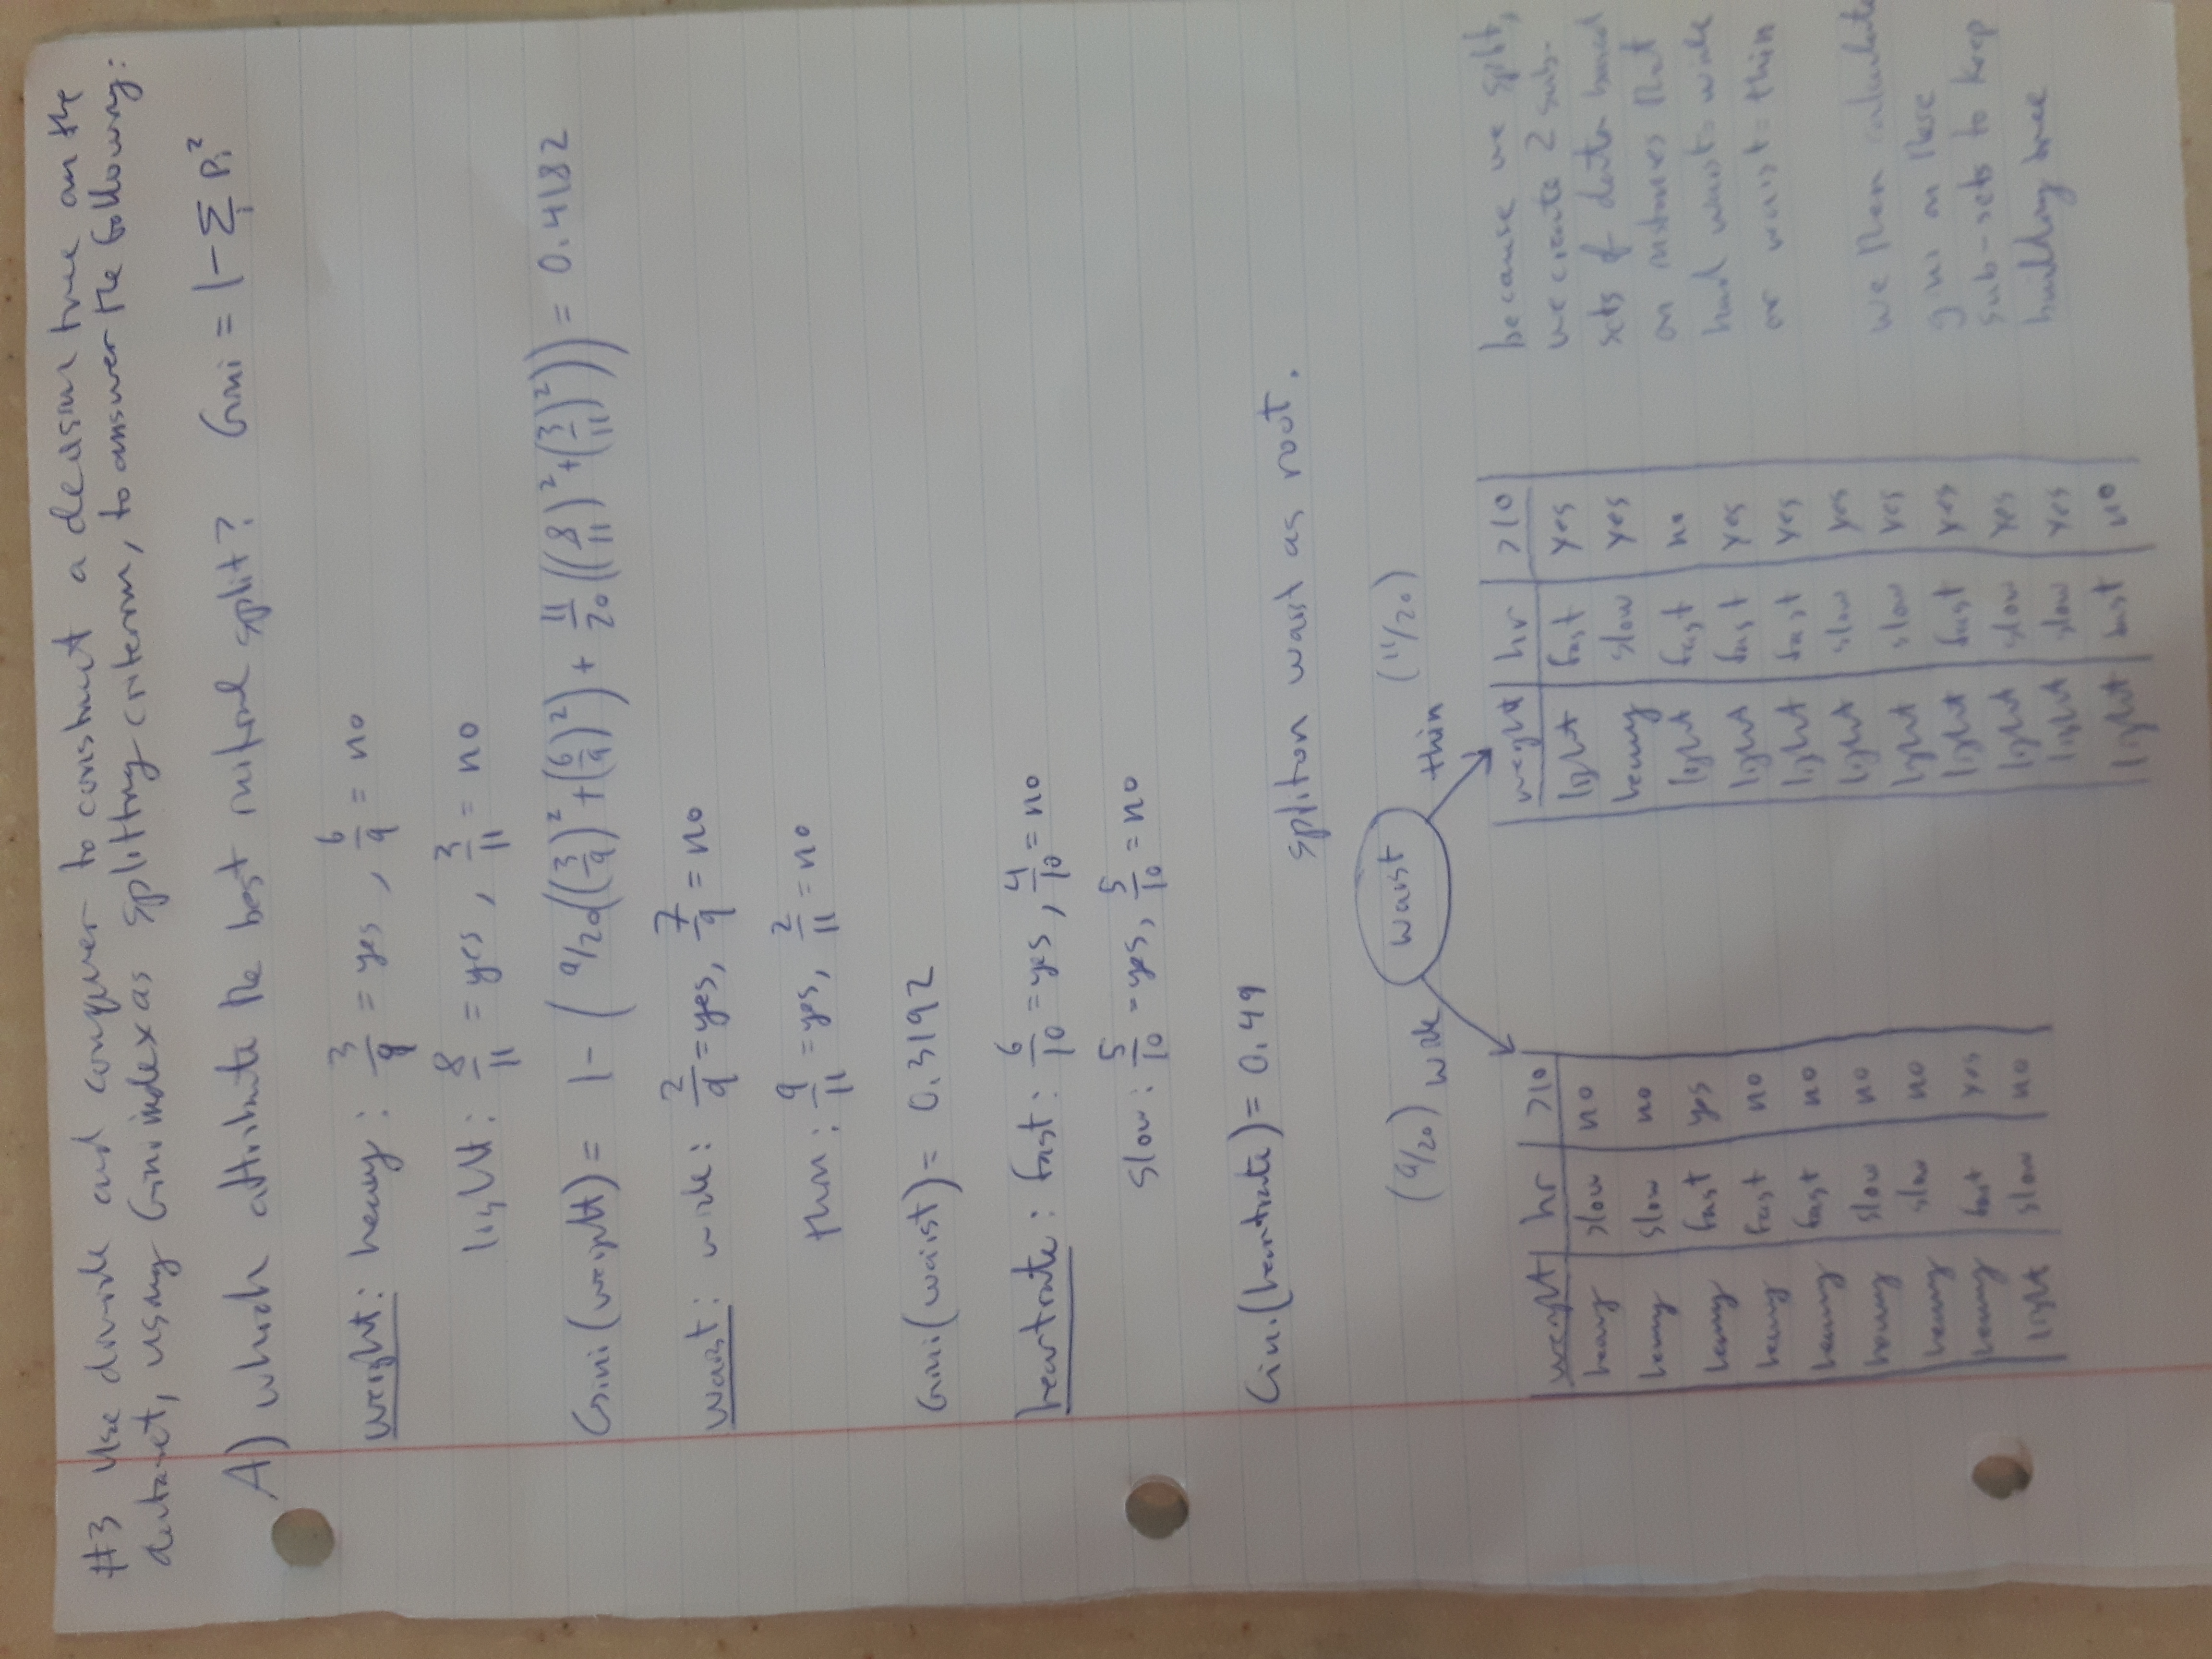 #3 Use divide and conquer to construct a decision tree on the
dataset, using Gini index as splitting criterion, to answer the following:
A) which attribute the best initial split? Gini = 1 - Σi pi²
weight: heavy: 3/9 = yes, 6/9 = no
light: 8/11 = yes, 3/11 = no
Gini(weight) = 1 - (9/20((3/9)² + (6/9)²) + 11/20((8/11)² + (3/11)²)) = 0.4182
waist: wide: 2/9 = yes, 7/9 = no
thin: 9/11 = yes, 2/11 = no
Gini(waist) = 0.3192
heartrate: fast: 6/10 = yes, 4/10 = no
slow: 5/10 = yes, 5/10 = no
Gini(heartrate) = 0.49
split on waist as root.
(9/20) wide
waist
thin (11/20)
weight hr >10
heavy slow no
heavy slow no
heavy fast yes
heavy fast no
heavy fast no
heavy slow no
heavy slow no
heavy fast yes
light slow no
weight hr >10
light fast yes
heavy slow yes
light fast no
light fast yes
light fast yes
light slow yes
light slow yes
light fast yes
light slow yes
light slow yes
light fast no
because we split,
we create 2 sub-
sets of data based
on instances that
had waist = wide
or waist = thin
we then calculate
gini on these
sub-sets to keep
building tree